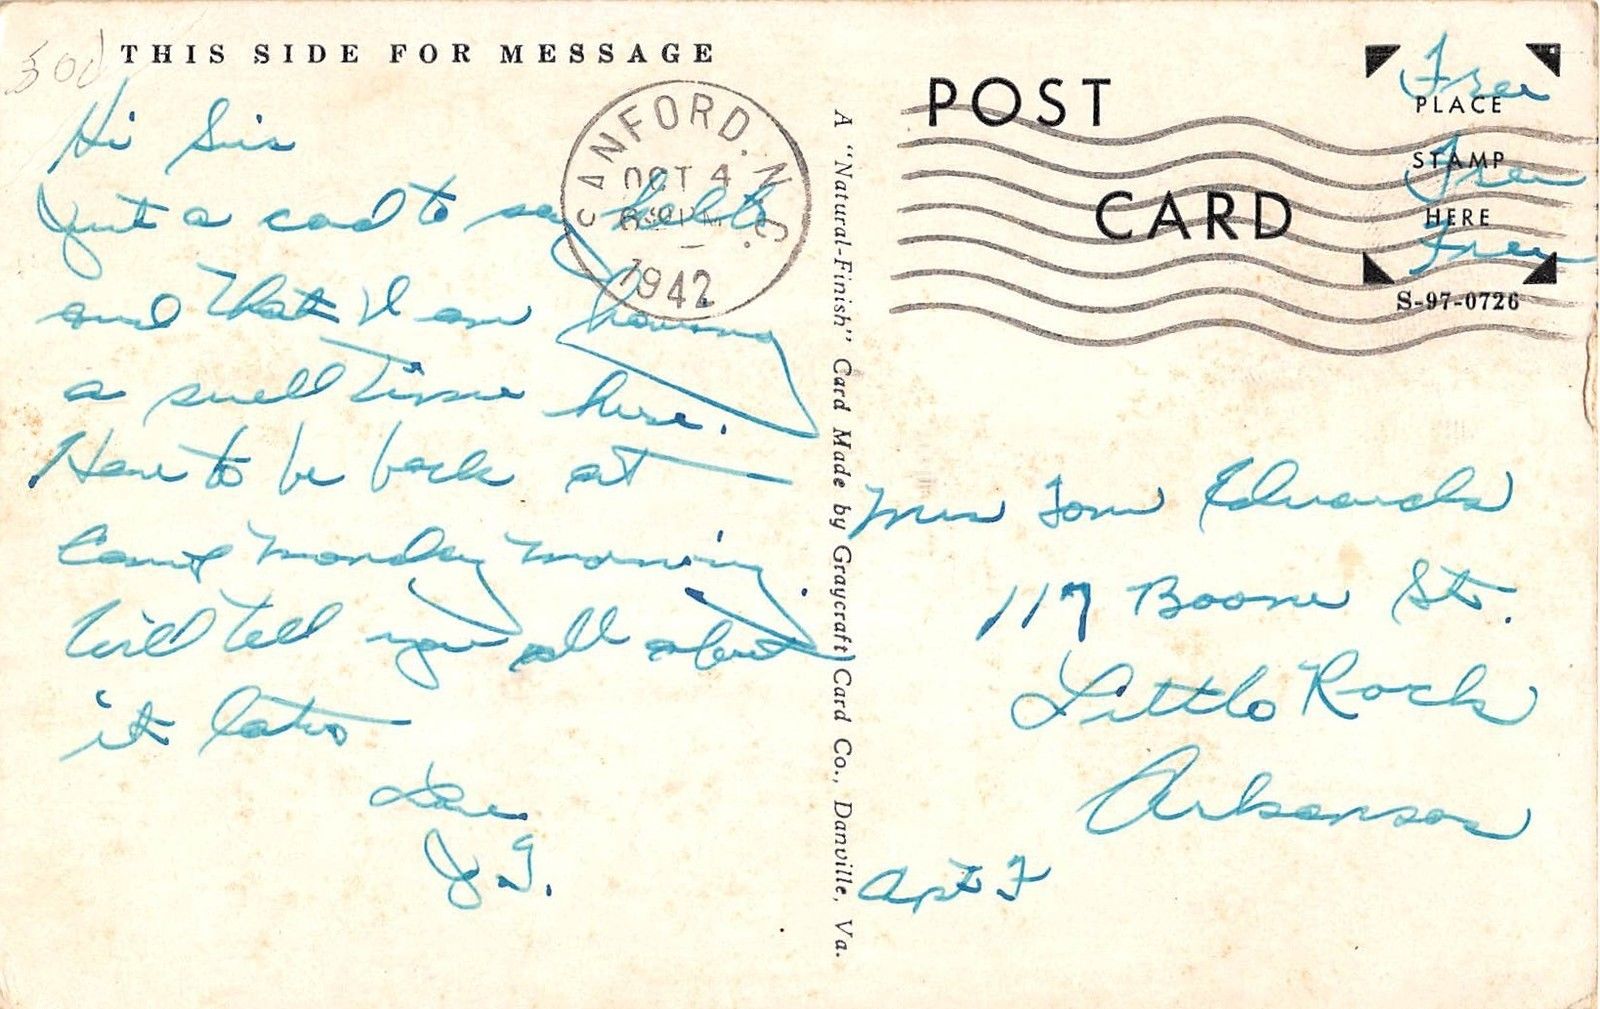 THIS SIDE FOR MESSAGE
Hi Sis
Just a card to say hello
and that I am having
a swell time here.
Have to be back at
Camp Monday morning.
Will tell you all about
it later
Love
J.T.
SANFORD, N.C.
OCT 4
1942
A "Natural-Finish" Card Made by Graycraft Card Co., Danville, Va.
POST
CARD
Free
PLACE
Free
STAMP
HERE
Free
S-97-0726
Mrs Tom Edwards
117 Boone St.
Little Rock
Arkansas
Apt F